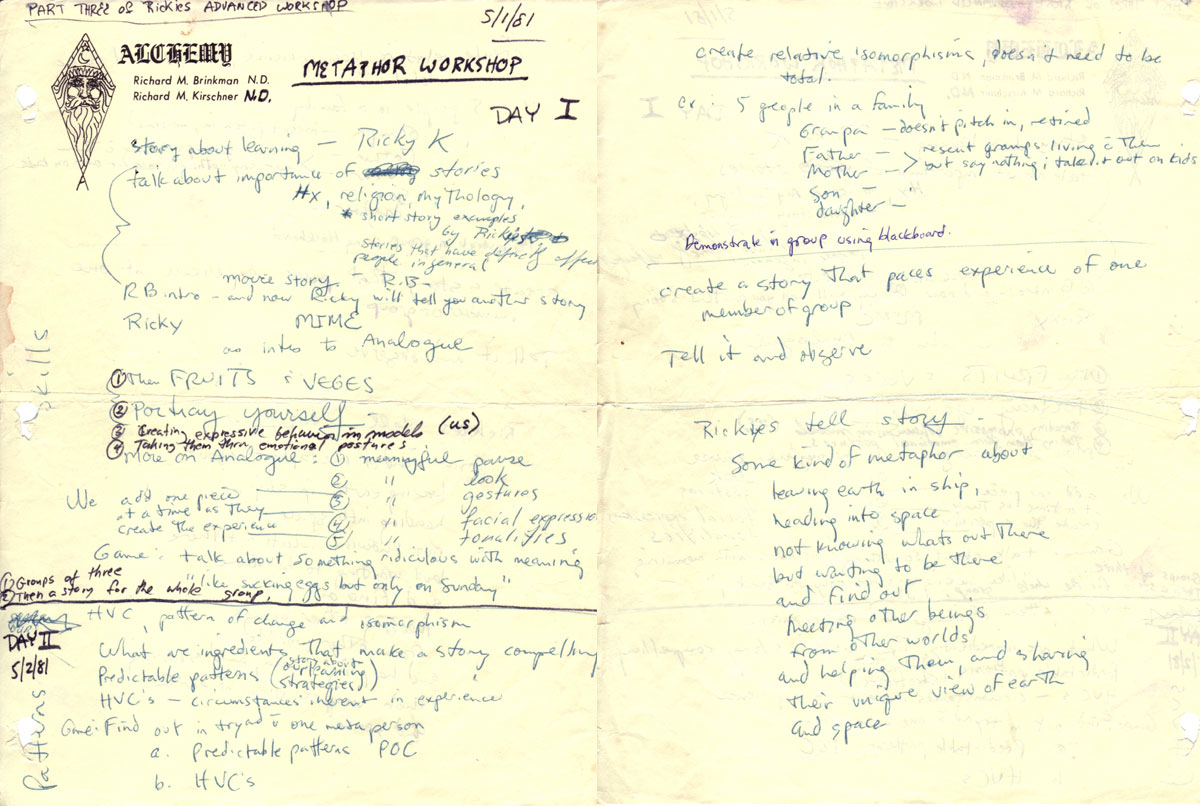 PART THREE of Rickies ADVANCED WORKSHOP
5/1/81
ALCHEMY
Richard M. Brinkman N.D.
Richard M. Kirschner N.D.
METAPHOR WORKSHOP
DAY I
story about learning — Ricky K
talk about importance of stories
Hx, religion, mythology,
* short story examples
by Ricky
stories that have definitely affec
people in general
movie story — R.B-
RB intro - and now Ricky will tell you another story
Ricky MIME
as intro to Analogue
Skills
① Then FRUITS & VEGES
② Portray yourself -
③ Creating expressive behavior in models (us)
④ Taking them thru emotional postures
More on Analogue: ① meaningful pause
② " look
③ " gestures
④ " facial expressio
⑤ " tonalities
We add one piece
at a time as they
create the experience
Game: talk about something ridiculous with meaning
"like sucking eggs but only on Sunday"
① Groups of three
② Then a story for the whole group.
DAY II
5/2/81
HVC, pattern of change and isomorphism
What are ingredients that make a story compelling
Predictable patterns (story about
strategies)
HVC's — circumstances inherent in experience
Game: Find out in tryad c̄ one meta person
a. Predictable patterns POC
b. HVC's
Patterns
create relative isomorphisms, doesn't need to be
total.
ex. 5 people in a family
Grampa — doesn't pitch in, retired
Father —
Mother — > resent gramps living c̄ them
but say nothing; take it out on kids
Son —
daughter —
Demonstrate in group using blackboard.
create a story that paces experience of one
member of group
Tell it and observe
Rickyes tell story
Some kind of metaphor about
leaving earth in ship,
heading into space
not knowing whats out there
but wanting to be there
and find out
meeting other beings
from other worlds
and helping them, and sharing
their unique view of earth
and space